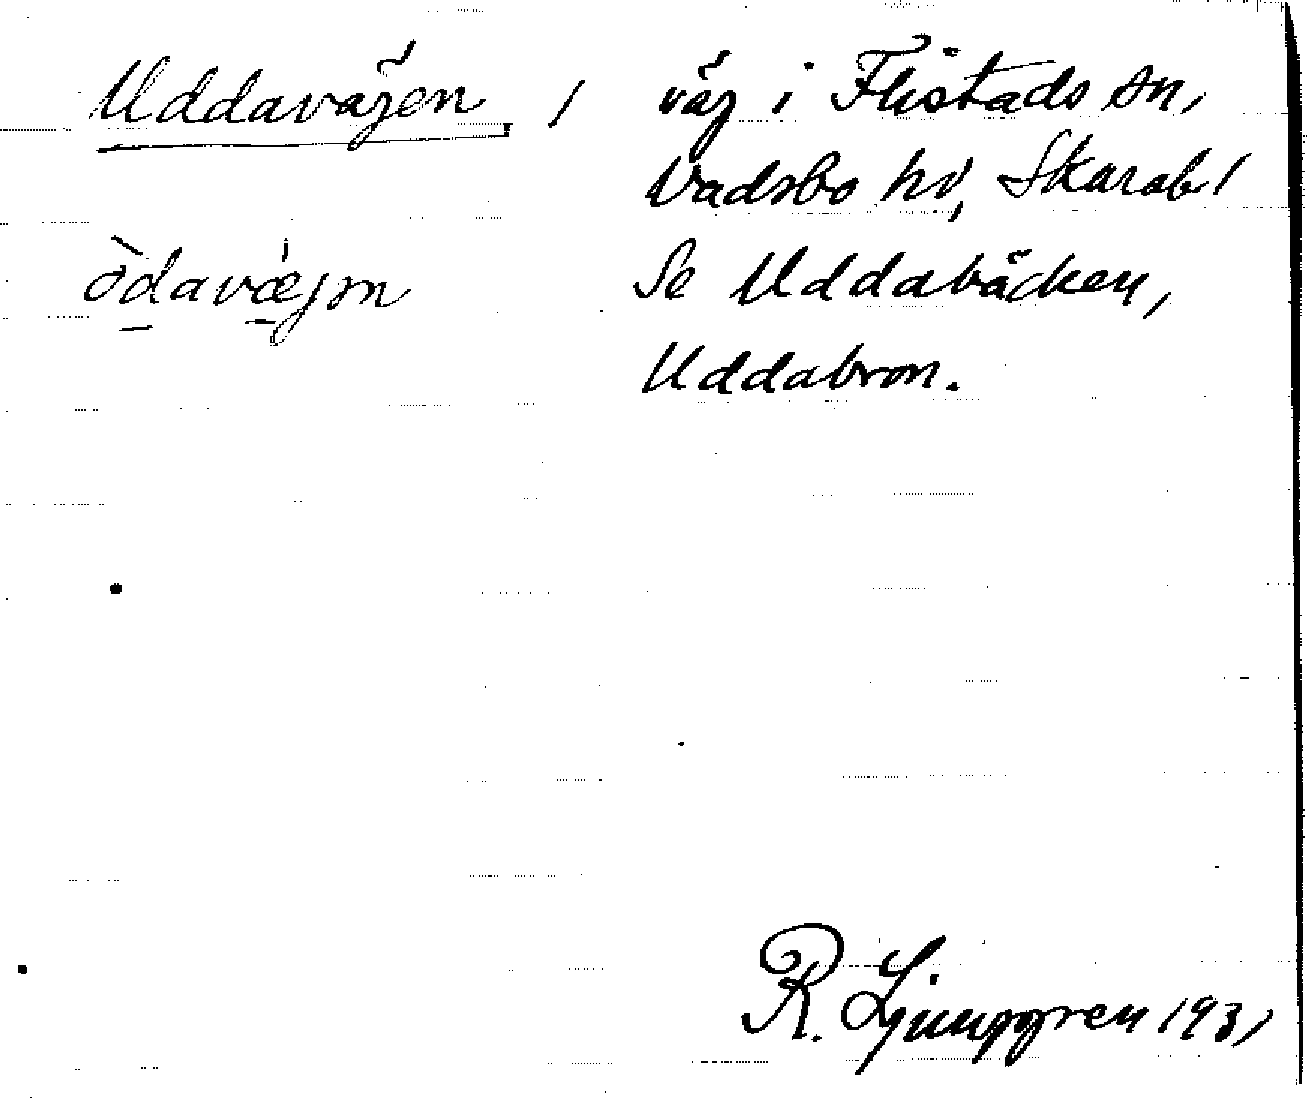 Uddavägen, väg i Flistads sn,
Vadsbo hd, Skarab.
òdavæ̀jən Se Uddabäcken,
Uddabron.
R. Ljunggren 1931